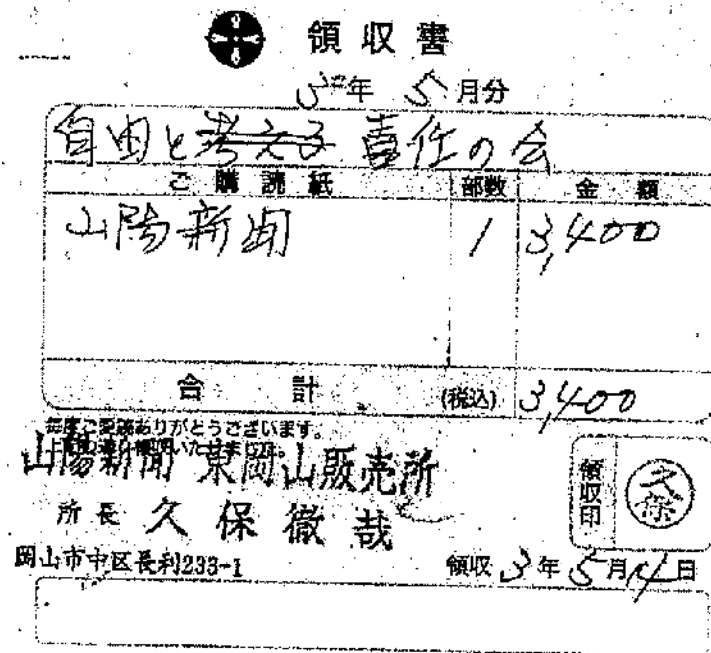 領収書
3年 5月分
自由と考える責任の会
ご購読紙 部数 金額
山陽新聞 1 3,400
合計 (税込) 3,400
毎度ご愛読ありがとうございます。
山陽新聞 東岡山販売所
所長 久保徹哉
岡山市中区長利233-1
領収印
久保
領収 3年5月14日